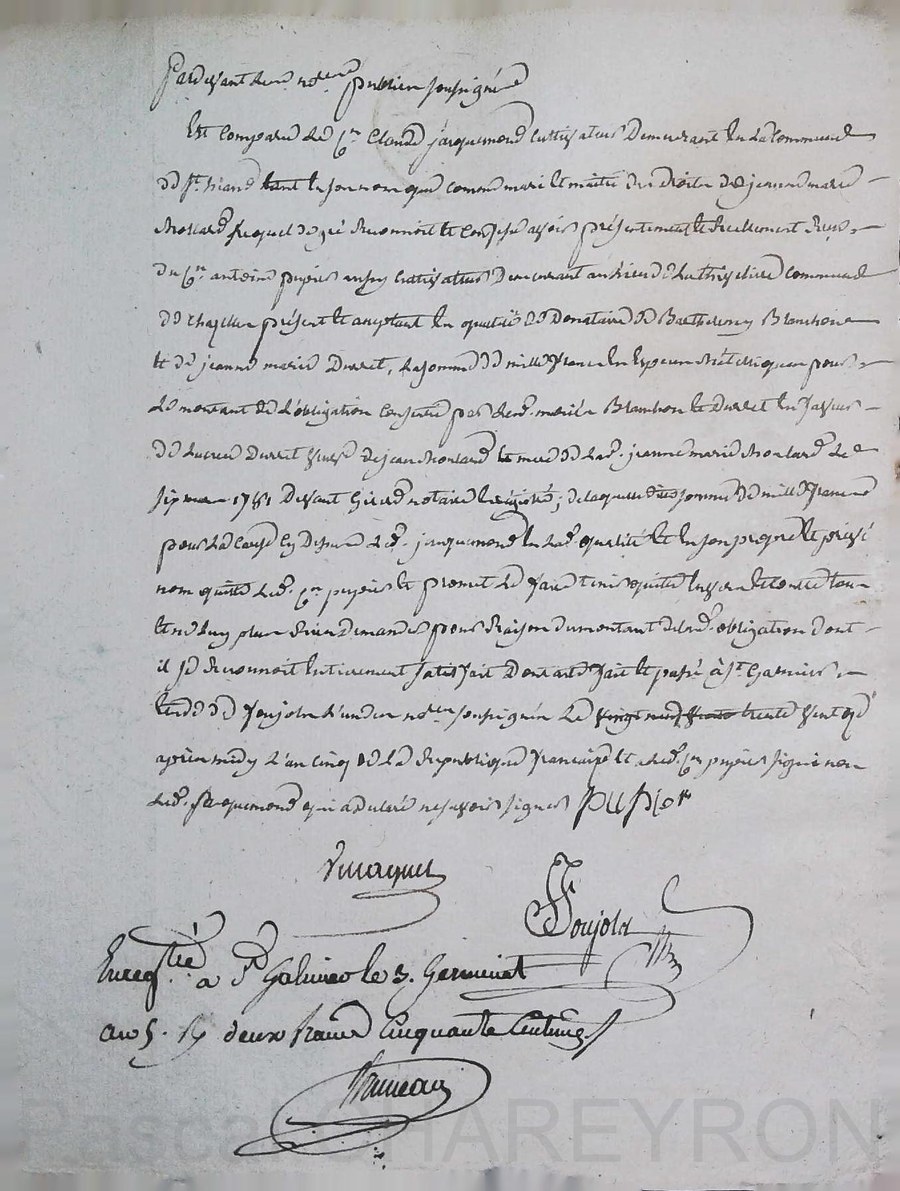 Pardevant les nores publics soussignés
Est comparu le Cn Claude jacquemond cultivateur demeurant en la commune
de St tant en son nom que comme mari et maitre des droits de jeanne marie
Molard lequel de gré reconnoit et confesse avoir présentement et reellement reçu
du Cn antoine pupier aussy cultivateur demeurant au lieu de commune
de présent et acceptant en qualité de donataire de Barthelemy Blanchon
et de jeanne marie Durret, la somme de mille francs en especes métalliques pour
le montant de l'obligation consentie par lesd. mariés Blanchon et Durret en faveur
de Durret veuve de jean Molard et mere de lad. jeanne marie Molard le
1781 devant notaire ; de laquelle somme de mille francs
pour la cause cy dessus led. jacquemond en lad. qualité et en son propre et privé
nom quitte led. Cn pupier et promet le faire tenir quitte envers et contre tous
et ne luy plus rien demander pour raison du montant de lad. obligation dont
il se reconnoit entierement satisfait dont acte fait et passé à St Galmier
etude de Joujola l'un des nores soussignés le vingt neuf trente ventose
après midy l'an cinq de la republique française et led. Cn pupier signé non
led. Jacquemond qui a declaré ne savoir signer pupier
Joujola
Enregistré a St Galmier le 3. Germinal
an 5. R deux francs Cinquante Centimes
Pascal CHAREYRON